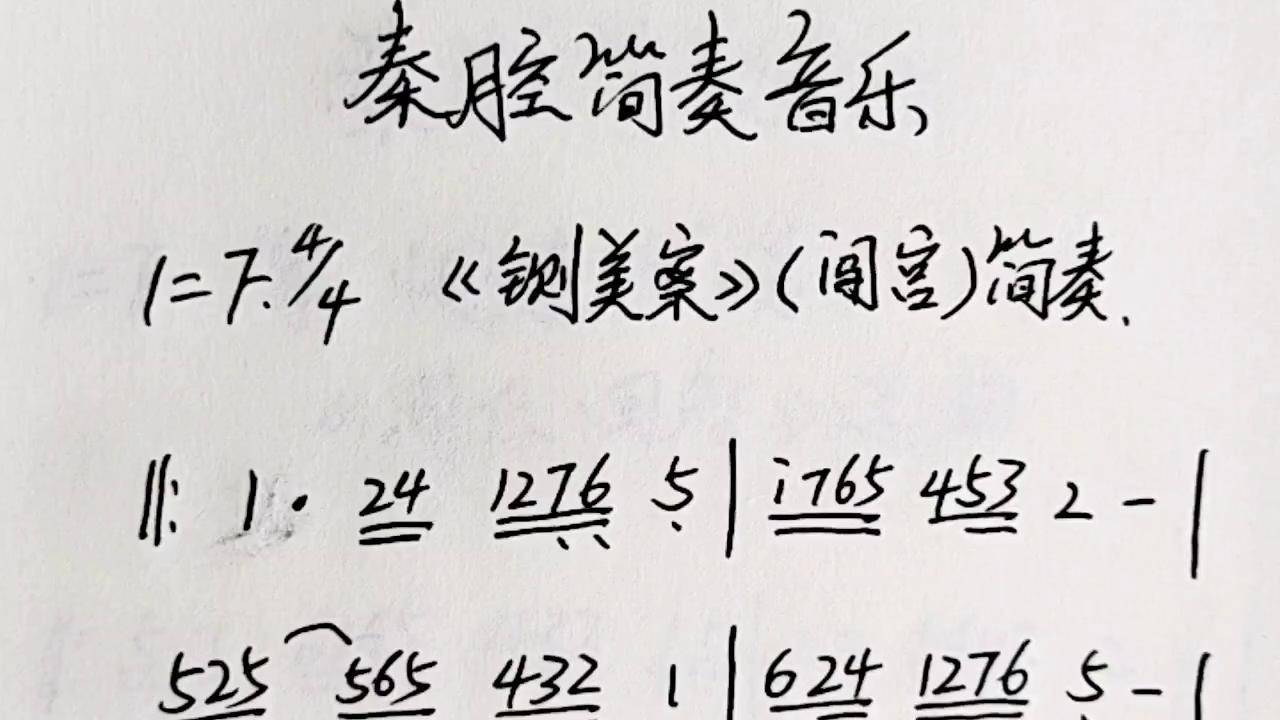 秦腔简奏音乐
1=F.4/4 《铡美案》(闯宫)简奏.
‖: 1· 24 1276 5 | i765 453 2 - |
525 565 432 1 | 624 1276 5 - |